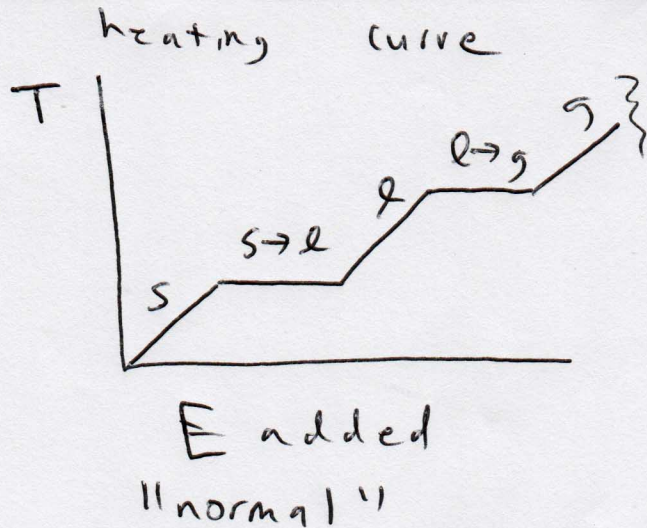 heating curve
T
g
l→g
l
s→l
s
E added
"normal"